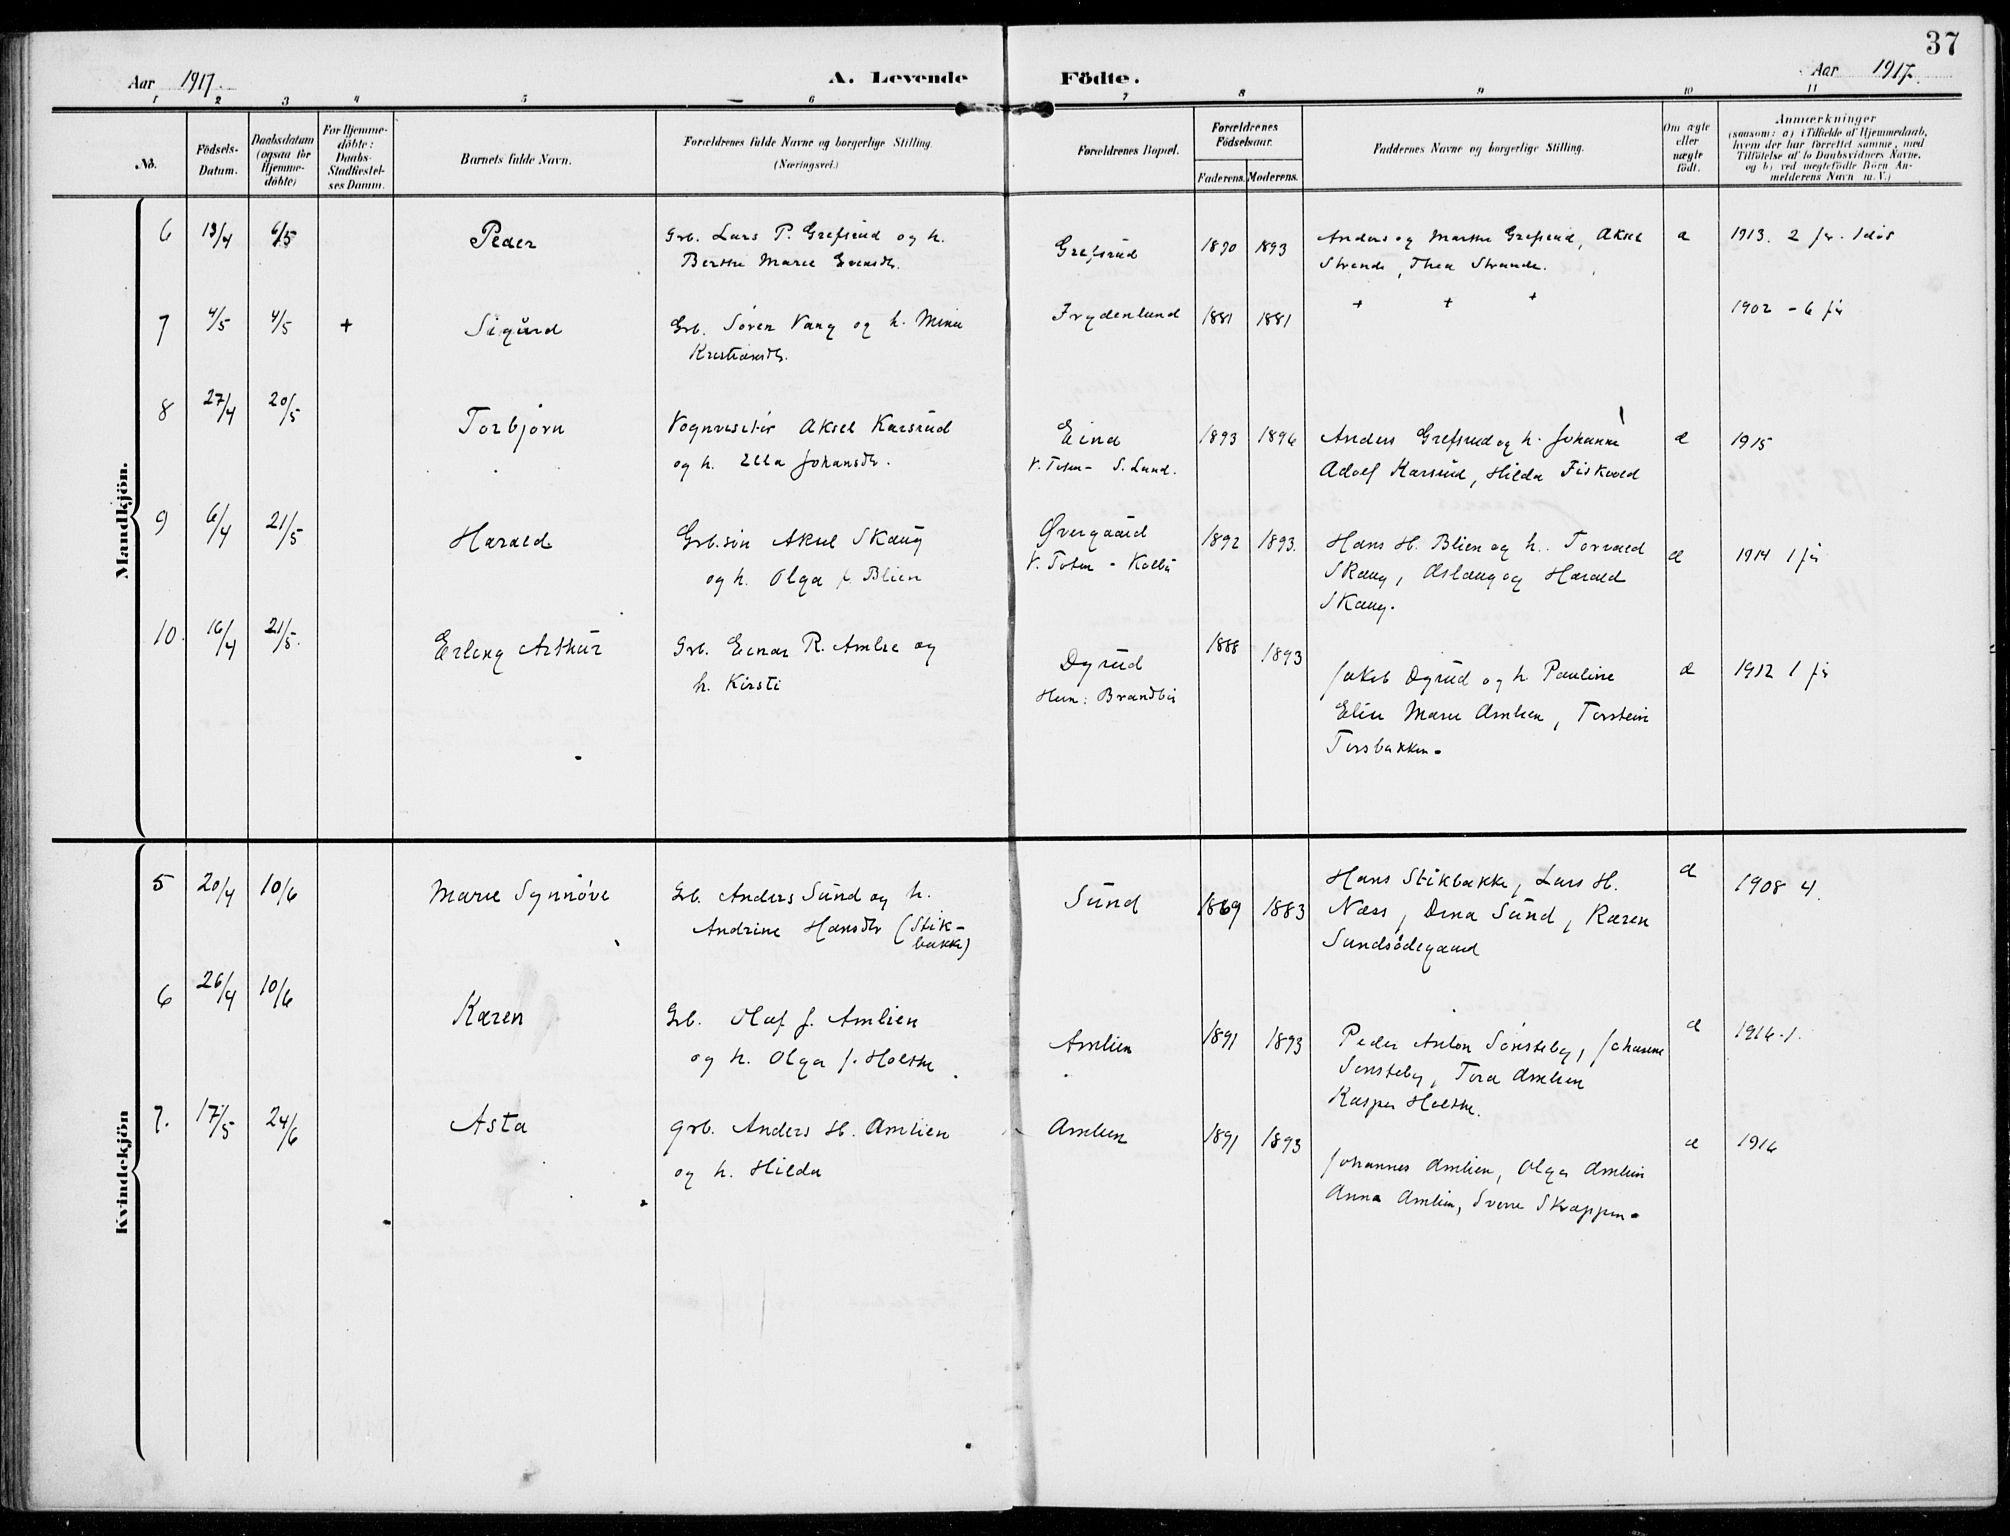 37
Aar 1917.
A. Levende Födte.
Aar 1917.
1 2 3 4 5 6 7 8 9 10 11
No.
Födsels-
Datum.
Daabsdatum
(ogsaa for
Hjemme-
döbte)
For Hjemme-
döbte:
Daabs-
Stadfæstel-
ses Datum.
Barnets fulde Navn.
Forældrenes fulde Navne og borgerlige Stilling.
(Næringsvei.)
Forældrenes Bopæl.
Forældrenes
Födselsaar.
Faderens. Moderens.
Faddernes Navne og borgerlige Stilling.
Om ægte
eller
uægte
födt.
Anmærkninger
(saasom: a) i Tilfælde af Hjemmedaab,
hvem der har forrettet samme, med
Tilföielse af to Daabsvidners Navne,
og b) ved uægtefödte Börn An-
melderens Navn m. V.)
Mandkjön.
6 13/4 6/5 Peder Grb. Lars P. Grefsrud og h. Grefsrud 1890 1893 Anders og Marthe Grefsrud, Aksel æ 1913. 2 før. 1 død
Berthe Marie Evensdr. Strande, Thea Strande.
7 4/5 4/5 + Sigurd Grb. Søren Vang og h. Mina Frydenlund 1881 1881 + + + 1902 - 6 før
Kristiansdr.
8 27/4 20/5 Torbjørn Vognvisitør Aksel Karsrud Eina 1893 1896 Anders Grefsrud og h. Johanne æ 1915
og h. Ella Johansdr. V. Toten - S. Land. Adolf Karsrud, Hilda Fiskvold
9 6/4 21/5 Harald Grb.søn Aksel Skaug Øvergaard 1892 1893. Hans H. Blien og h. Torvald æ 1914 1 før
og h. Olga f. Blien V. Toten - Kolbu Skaug, Aslaug og Harald
Skaug.
10. 16/4 21/5. Erling Arthur Grb. Einar R. Amlie og Dyrud 1888 1893 Jakob Dyrud og h. Pauline æ 1912 1 før
h. Kirsti Hem: Brandbu Elise Marie Amlien, Torstein
Torsbakken.
Kvindekjön
5 20/4 10/6 Marie Synnøve Grb. Anders Sund og h. Sund 1869 1883 Hans Stikbakke, Lars H. æ 1908 4.
Andrine Hansdr (Stik-
bakke) Næss, Dina Sund, Karen
Sundsødegaard
6 26/4 10/6 Karen Grb. Olaf J. Amlien Amlien 1891 1893 Peder Anton Sønsteby, Johanne æ 1916-1.
og h. Olga f. Holthe. Sønsteby, Tora Amlien
Kasper Holthe.
7. 17/5 24/6 Asta grb. Anders H. Amlien Amlien 1891 1893 Johannes Amlien, Olga Amlien æ 1916
og h. Hilda Anna Amlien, Sverre Skrappen.